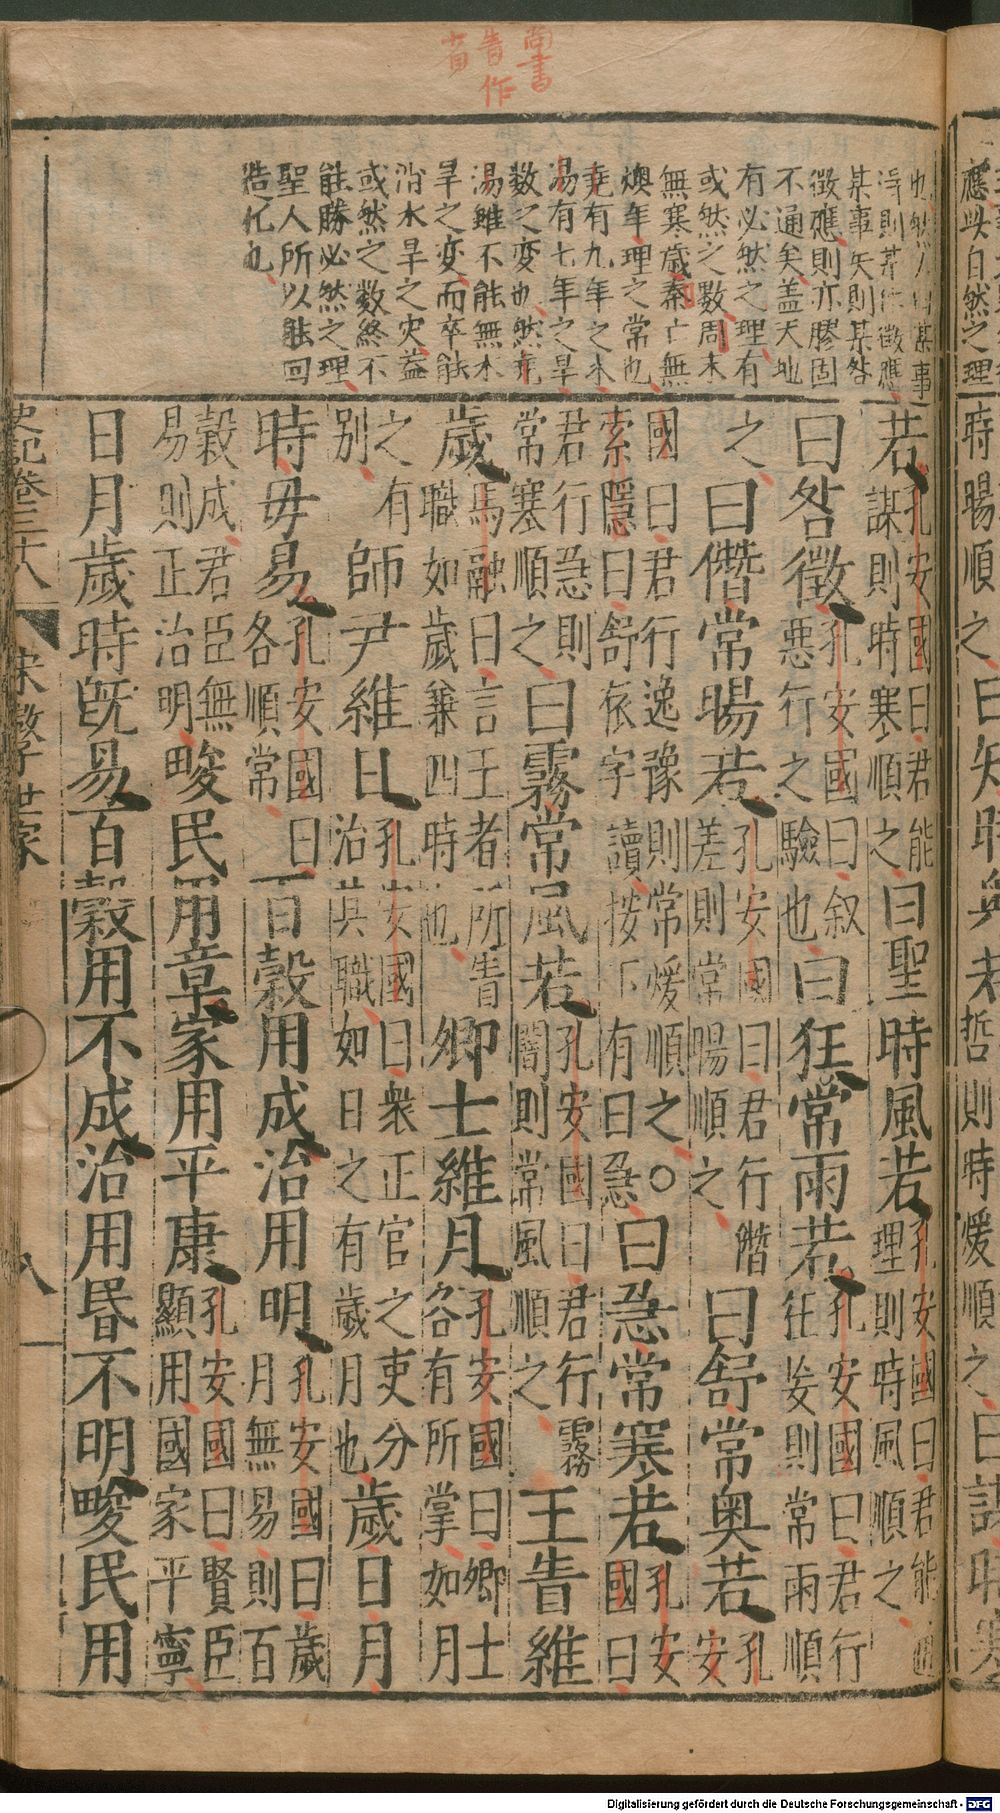 尚書
眚作
省
也然人曰某事
得則某休徵應
某事失則某咎
徵應則亦膠固
不通矣蓋天地
有必然之理有
或然之數周末
無寒歲秦亡無
燠年理之常也
堯有九年之水
湯有七年之旱
數之変也然堯
湯雖不能無水
旱之変而卒能
消水旱之灾蓋
或然之數終不
能勝必然之理
聖人所以能囘
造化也
應此自然之理
時暘順之曰知時奥若哲則時煖順之曰謀時寒
若孔安國曰君能謀則時寒順之曰聖時風若孔安國曰君能通理則時風順之
曰咎徵孔安國曰叙惡行之驗也曰狂常雨若孔安國曰君行狂妄則常雨順
之曰僭常暘若孔安國曰君行僭差則常暘順之曰舒常奥若孔安
國曰君行逸豫則常煖順之○索隱曰舒依字讀按下有曰急曰急常寒若孔安國曰
君行急則常寒順之曰霧常風若孔安國曰君行霧闇則常風順之王眚維
歲馬融曰言王者所眚職如歲兼四時也卿士維月孔安國曰卿士各有所掌如月
之有别師尹維日孔安國曰衆正官之吏分治其職如日之有歲月也歲日月
時毋易孔安國曰各順常百榖用成治用明孔安國曰歲月無易則百
榖成君臣無易則正治明畯民用章家用平康孔安國曰賢臣顯用國家平寧
日月歲時旣易百榖用不成治用昬不明畯民用
史記卷三十八 宋微子世家 八
Digitalisierung gefördert durch die Deutsche Forschungsgemeinschaft - DFG